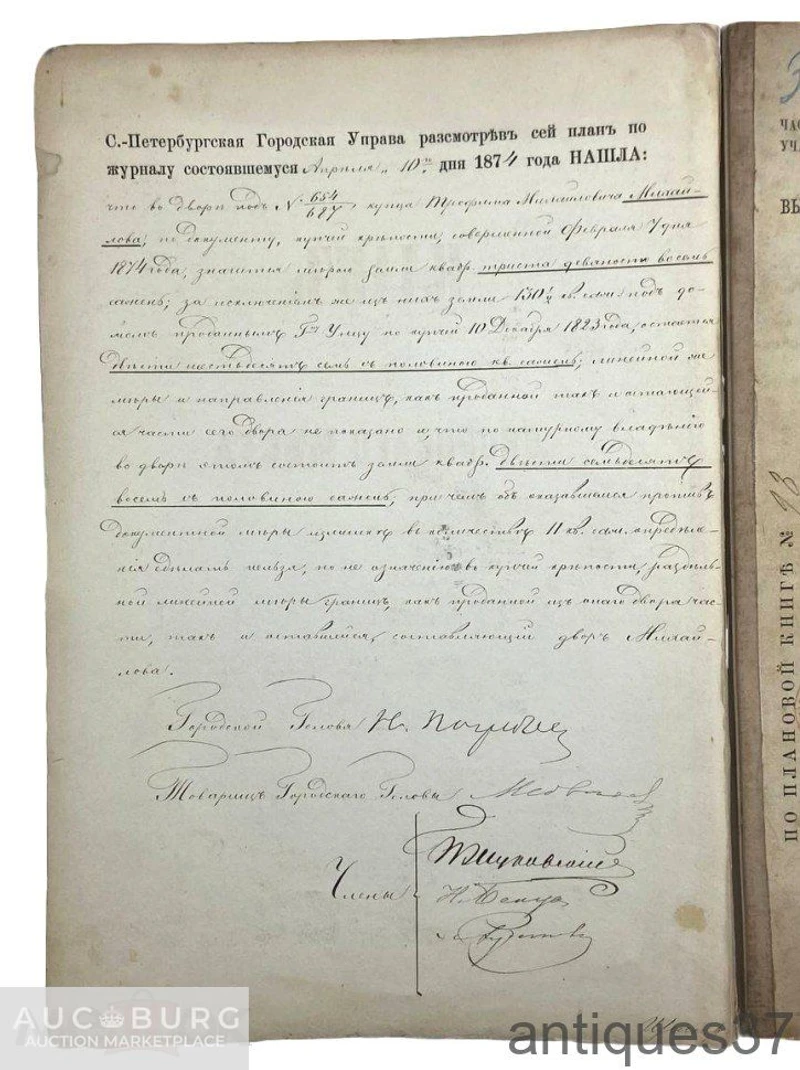 С.-Петербургская Городская Управа разсмотрѣвъ сей планъ по
журналу состоявшемуся Апрѣля „10го дня 1874 года НАШЛА:
что во дворѣ подъ № 654/687, купца Трофима Михайловича Михай-
лова, по документу, купчей крѣпости, совершенной Февраля 7 дня
1874 года, значится мѣрою земли квадр. триста девяносто восемь
сажень; за исключеніемъ же изъ нихъ земли 130 1/2 кв. саж. подъ до-
момъ проданнымъ Гну Улицу по купчей 10 Декабря 1823 года, остается
двѣсти шестьдесятъ семь съ половиною кв. сажень; линейной же
мѣры и направленія границъ, какъ проданной такъ и остающей-
ся части сего двора не показано и, что по натурному владѣнію
во дворѣ этомъ состоитъ земли квадр. двѣсти семьдесятъ
восемь съ половиною сажень; при чемъ объ оказавшемся противъ
документной мѣры излишекъ въ количествѣ 11 кв. саж. опредѣле-
нія сдѣлать нельзя, по не означенію въ купчей крѣпости, раздѣль-
ной линейной мѣры границъ, какъ проданной изъ онаго двора час-
ти, такъ и оставшейся, составляющей дворъ Михай-
лова.
Городской Голова Н. Погребов
Товарищъ Городскаго Головы Медведев
Члены
Жуковскій
Н.
ЧАС
УЧА
ВЫ
ПО ПЛАНОВОЙ КНИГѢ №
AUCBURG
AUCTION MARKETPLACE
antiques37